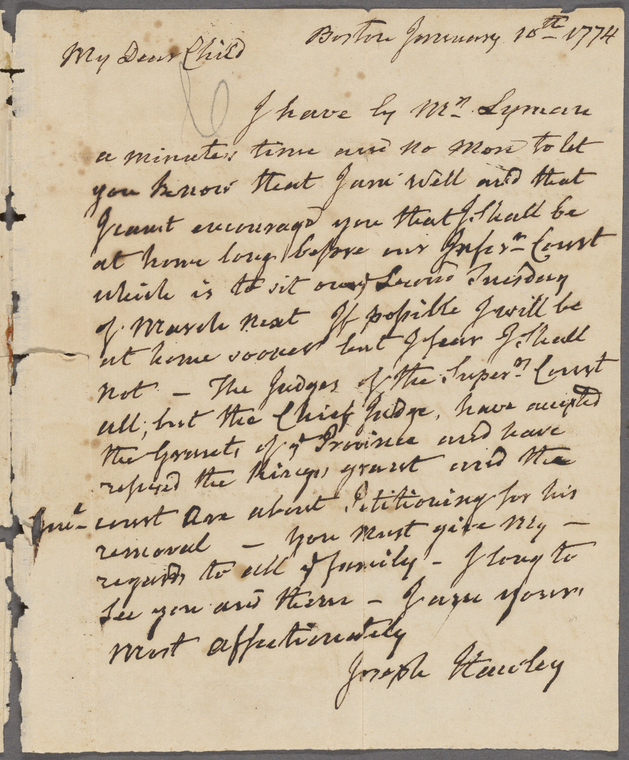 Boston January 18th 1774
My Dear Child
I have by Mr. Lyman
a minutes time and no more to let
you know that I am well and that
I cant encourage you that I shall be
at home long before our Infer.r Court
which is to sit on ye Second Tuesday
of March next If possible I will be
at home sooner but I fear I shall
not — The Judges of the Super.r Court
all, but the Chief Judge, have accepted
the Grants of ye Province and have
refused the Kings grant and the
Genl court are about Petitioning for his
removal — you must give my —
regards to all ye family — I long to
see you and them — I am yours
most affectionately
Joseph Hawley